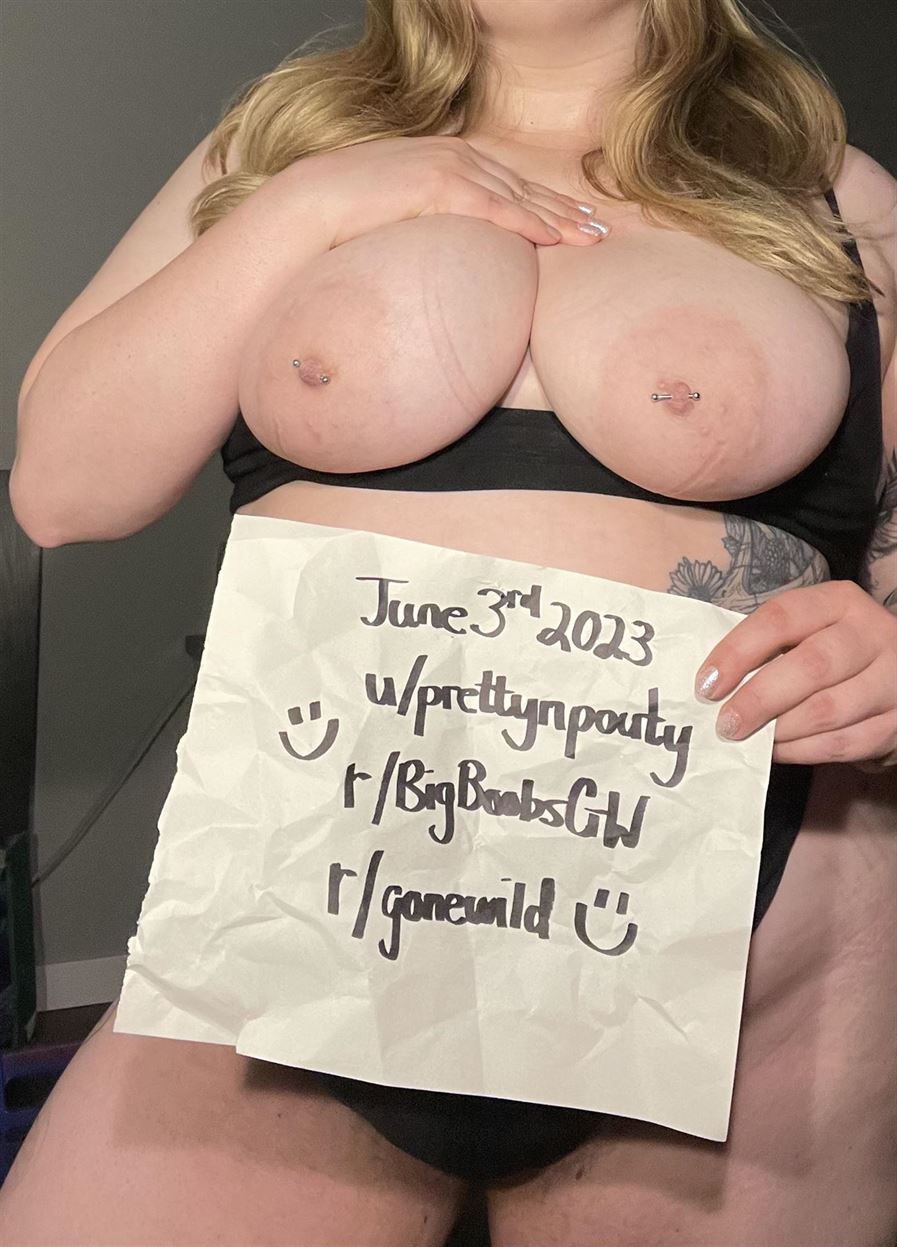 June 3rd 2023
u/prettynpouty
r/BigBoobsGW
r/gonewild